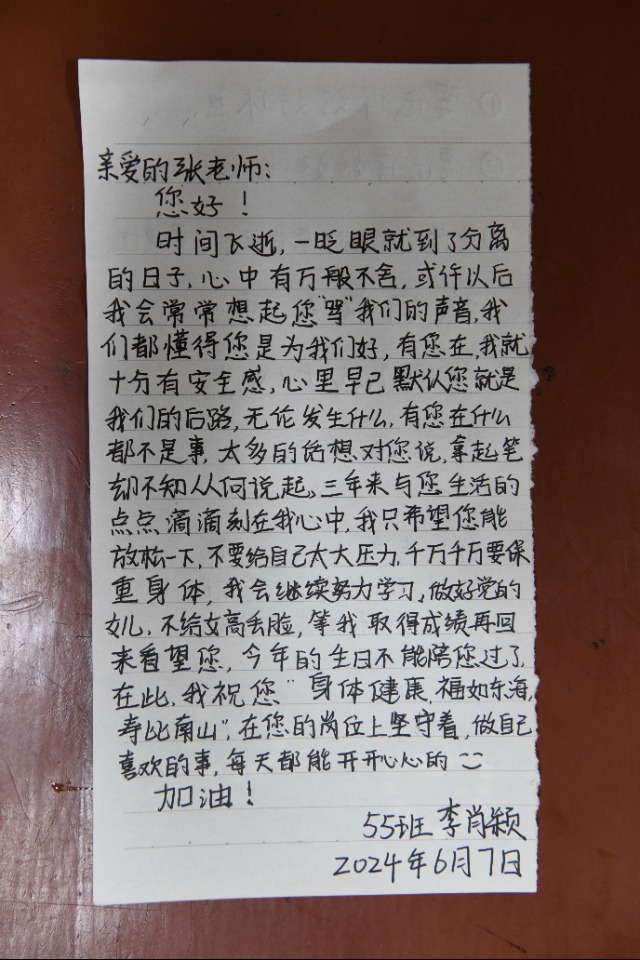 亲爱的张老师:
您好!
时间飞逝,一眨眼就到了分离
的日子,心中有万般不舍,或许以后
我会常常想起您"骂"我们的声音,我
们都懂得您是为我们好,有您在,我就
十分有安全感,心里早已默认您就是
我们的后路,无论发生什么,有您在什么
都不是事,太多的话想对您说,拿起笔
却不知从何说起。三年来与您生活的
点点滴滴刻在我心中,我只希望您能
放松一下,不要给自己太大压力,千万千万要保
重身体,我会继续努力学习,做好党的
女儿,不给女高丢脸,等我取得成绩再回
来看望您,今年的生日不能陪您过了,
在此,我祝您"身体健康,福如东海,
寿比南山",在您的岗位上坚守着,做自己
喜欢的事,每天都能开开心心的
加油!
55班 李肖颖
2024年6月7日